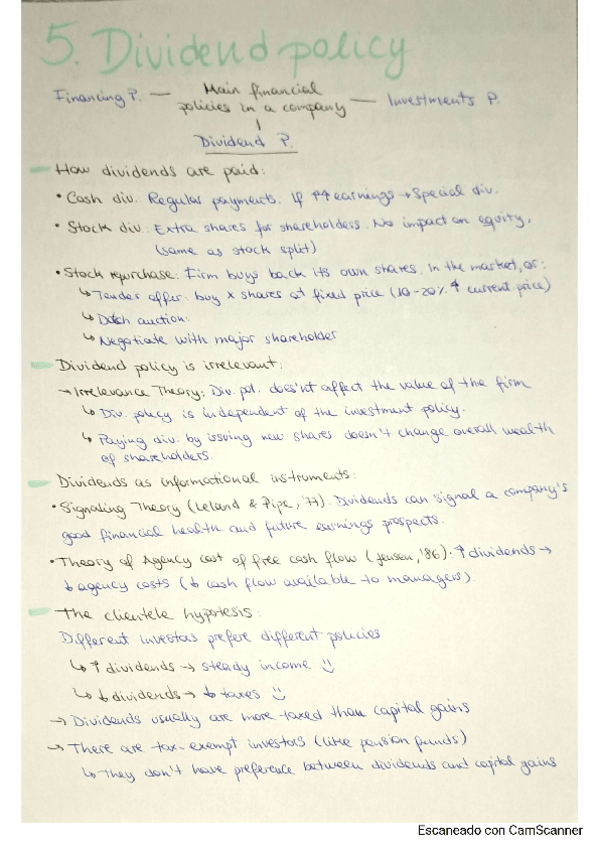 5. Dividend policy
Financing P. — Main financial policies in a company — Investments P.
Dividend P.
How dividends are paid:
• Cash div. Regular payments. If ↑↑ earnings → Special div.
• Stock div. Extra shares for shareholders. No impact on equity,
(same as stock split)
• Stock repurchase: Firm buys back its own shares. In the market, or:
↳ Tender offer: buy x shares at fixed price (10-20% ↑ current price)
↳ Dutch auction:
↳ Negotiate with major shareholder
Dividend policy is irrelevant:
→ Irrelevance Theory: Div. pol. does'nt affect the value of the firm
↳ Div. policy is independent of the investment policy.
↳ Paying div. by issuing new shares doesn't change overall wealth
of shareholders.
Dividends as informational instruments:
• Signaling Theory (Leland & Pype, '77). Dividends can signal a company's
good financial health and future earnings prospects.
• Theory of Agency cost of free cash flow (Jensen, '86): ↑ dividends →
↓ agency costs (↓ cash flow available to managers).
The clientele hypotesis:
Different investors prefere different policies
↳ ↑ dividends → steady income :)
↳ ↓ dividends → ↓ taxes :)
→ Dividends usually are more taxed than capital gains
→ There are tax-exempt investors (like pension funds)
↳ They don't have preference between dividends and capital gains
Escaneado con CamScanner